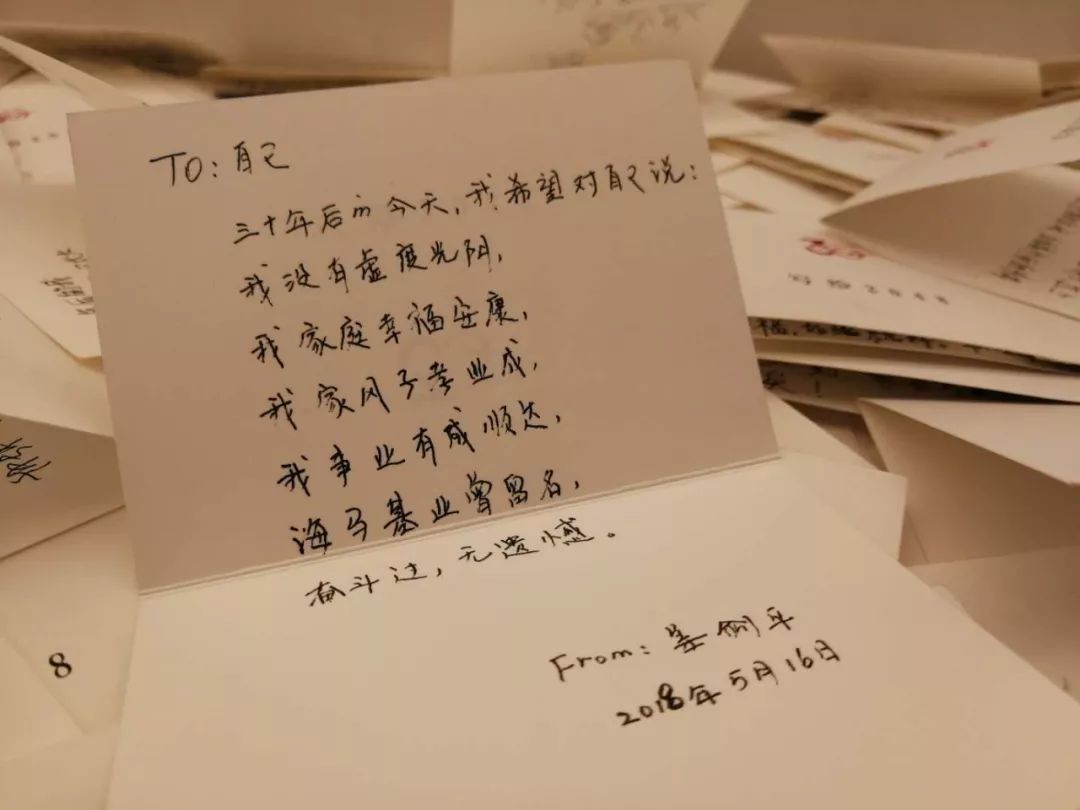 TO：自己
三十年后的今天，我希望对自己说：
我没有虚度光阴，
我家庭幸福安康，
我家风子孝业成，
我事业有成顺达，
海马基业曾留名，
奋斗过，无遗憾。
From：姜
2018年5月16日
8